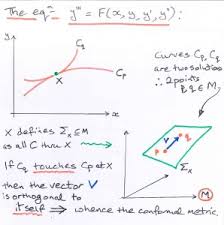 The eqⁿ y''' = F(x, y, y', y'') :
y
C_q
X
C_p
x
curves C_p, C_q
are two solutions
∴ 2 points
p, q ∈ M
X defines Σ_x ⊆ M
as all C thru X
If C_q touches C_p at X
then the vector V
is orthogonal to
itself
whence the conformal metric.
p
V
q
Σ_x
M